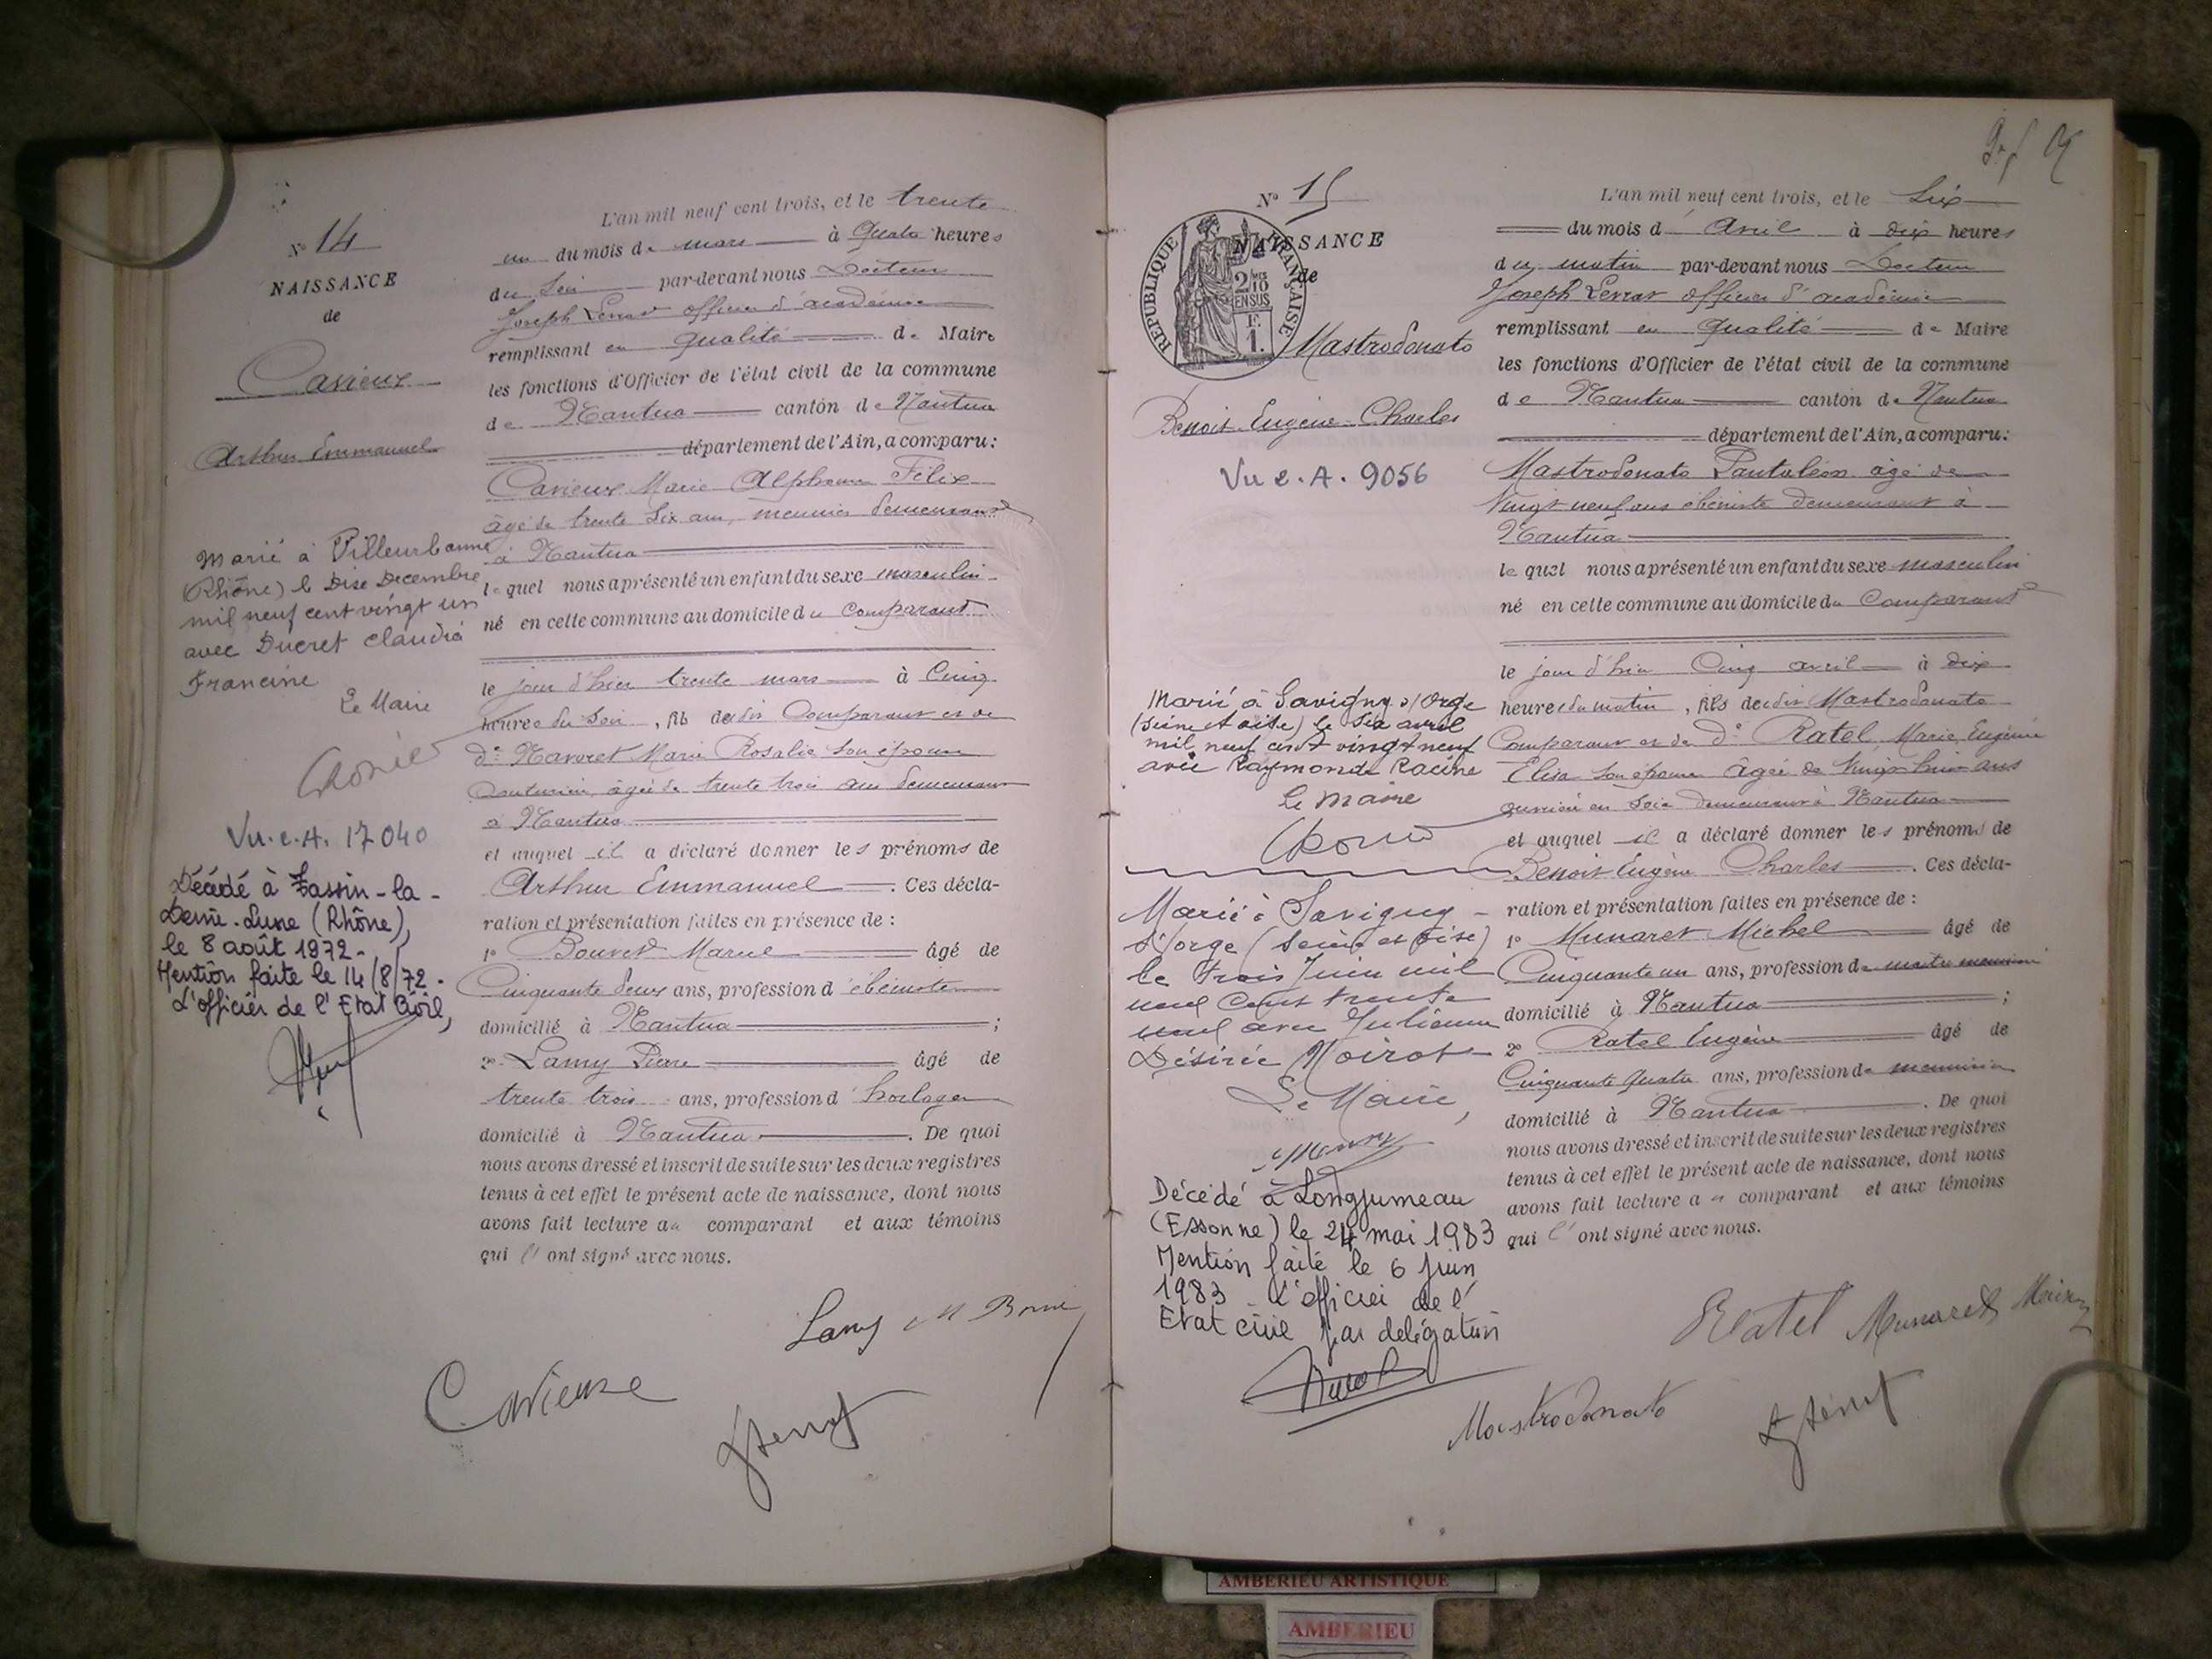 N° 14
NAISSANCE
de
Carieux
Arthur Emmanuel
Marié à Villeurbanne
(Rhône) le Dix Decembre
mil neuf cent vingt un
avec Ducret Claudia
Francine
Le Maire
Vu. e. A. 17040
Décédé à Tassin-la-
Demi-Lune (Rhône),
le 8 août 1972-
Mention faite le 14/8/72.
L'officier de l'Etat Civil,
L'an mil neuf cent trois, et le trente
un du mois de mars à Quatre heures
du Soir par-devant nous Docteur
Joseph officier d'académie
remplissant en qualité de Maire
les fonctions d'Officier de l'état civil de la commune
de Nantua canton de Nantua
département de l'Ain, a comparu:
Carieux Marie Alphonse Félix
âgé de trente Six ans, menuisier demeurant
à Nantua
lequel nous a présenté un enfant du sexe masculin
né en cette commune au domicile du Comparant
le jour d'hier trente mars à Cinq
heures du Soir, fils de dit Comparant et de
de Marie Rosalie Son épouse
âgée de trente trois ans demeurant
à Nantua
et auquel il a déclaré donner les prénoms de
Arthur Emmanuel. Ces décla-
ration et présentation faites en présence de :
1° Bouvet Marcel âgé de
Cinquante deux ans, profession d'ébéniste
domicilié à Nantua ;
2° Lamy Pierre âgé de
trente trois ans, profession d'horloger
domicilié à Nantua. De quoi
nous avons dressé et inscrit de suite sur les deux registres
tenus à cet effet le présent acte de naissance, dont nous
avons fait lecture au comparant et aux témoins
qui l'ont signé avec nous.
Lamy
Carieux
N° 15
NAISSANCE
de
RÉPUBLIQUE FRANÇAISE
2/10
EN SUS
F.
1.
Mastrodonato
Benoit Eugène Charles
Vu e. A. 9056
Marié à Savigny s/Orge
(Seine et Oise) le Six avril
mil neuf cent vingt neuf
avec Raymonde Racine
Le Maire
Marié à Savigny-
s/orge (Seine et Oise)
le trois Juin mil
neuf cent trente
neuf avec Julienne
Désirée Noirot
Le Maire,
Décédé à Longjumeau
(Essonne) le 24 mai 1983
Mention faite le 6 juin
1983 L'officier de l'
Etat civil par delégation
L'an mil neuf cent trois, et le Six
du mois d'Avril à dix heures
du matin par-devant nous Docteur
Joseph officier d'académie
remplissant en qualité de Maire
les fonctions d'Officier de l'état civil de la commune
de Nantua canton de Nantua
département de l'Ain, a comparu:
Mastrodonato Pantaléon âgé de
Vingt neuf ans ébéniste demeurant à
Nantua
lequel nous a présenté un enfant du sexe masculin
né en cette commune au domicile du Comparant
le jour d'hier Cinq avril à dix
heures du matin, fils de dit Mastrodonato
Comparant et de De Ratel Marie Eugénie
Elisa Son épouse âgée de Vingt huit ans
ouvrière en Soie demeurant à Nantua
et auquel il a déclaré donner les prénoms de
Benoit Eugène Charles. Ces décla-
ration et présentation faites en présence de :
1° Munaret Michel âgé de
Cinquante un ans, profession de maître menuisier
domicilié à Nantua ;
2° Ratel Eugène âgé de
Cinquante Quatre ans, profession de menuisier
domicilié à Nantua. De quoi
nous avons dressé et inscrit de suite sur les deux registres
tenus à cet effet le présent acte de naissance, dont nous
avons fait lecture au comparant et aux témoins
qui l'ont signé avec nous.
Ratel Munaret
Mastrodonato
AMBERIEU ARTISTIQUE
AMBERIEU